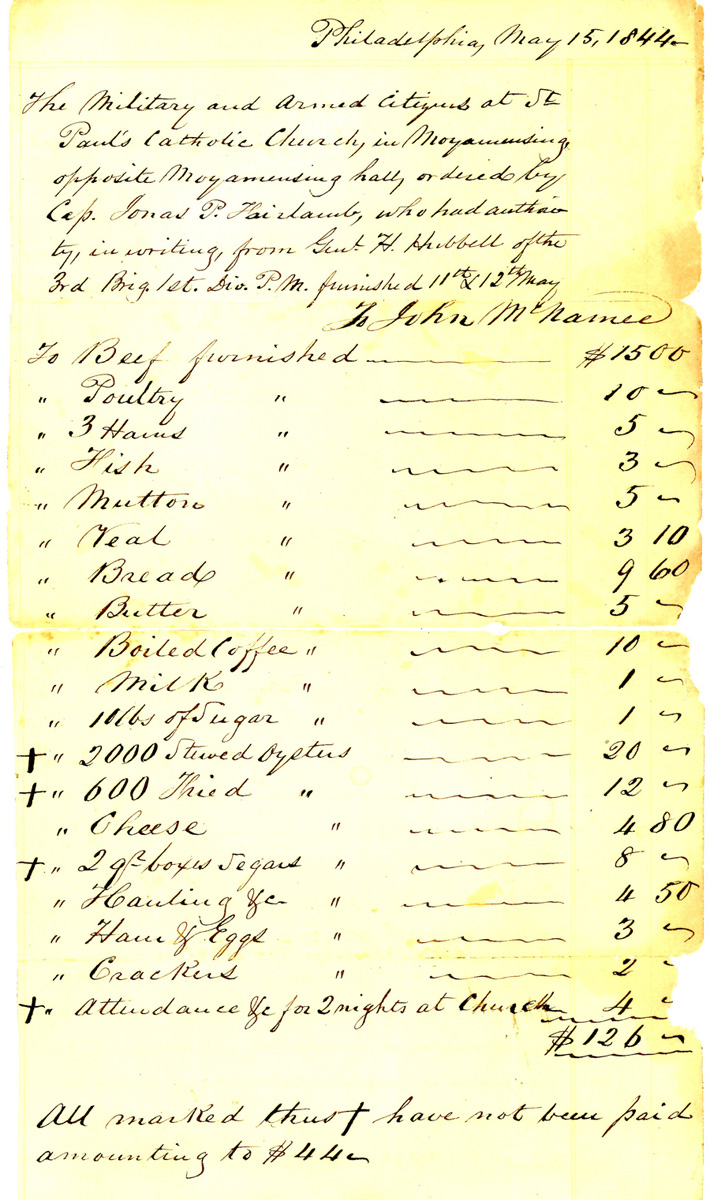 Philadelphia, May 15, 1844
The Military and Armed Citizens at St
Paul's Catholic Church, in Moyamensing,
opposite Moyamensing hall, ordered by
Cap. Jonas P. Fairlamb, who had authori
ty, in writing, from Genl. H. Hubbell of the
3rd Brig. 1st. Div. P.M. furnished 11th & 12th May
To John McNamee
To Beef furnished $15 00
" Poultry " 10 ~
" 3 Hams " 5 ~
" Fish " 3 ~
" Mutton " 5 ~
" Veal " 3 10
" Bread " 9 60
" Butter " 5 ~
" Boiled Coffee " 10 ~
" Milk " 1 ~
" 10 lbs of Sugar " 1 ~
† " 2000 Stewed Oysters 20 ~
† " 600 Fried " 12 ~
" Cheese " 4 80
† " 2 qr boxes Segars " 8 ~
" Hauling &c " 4 50
" Ham & Eggs " 3 ~
" Crackers " 2 ~
† " Attendance &c for 2 nights at Church 4 ~
$126 ~
All marked thus † have not been paid
amounting to $44 ~